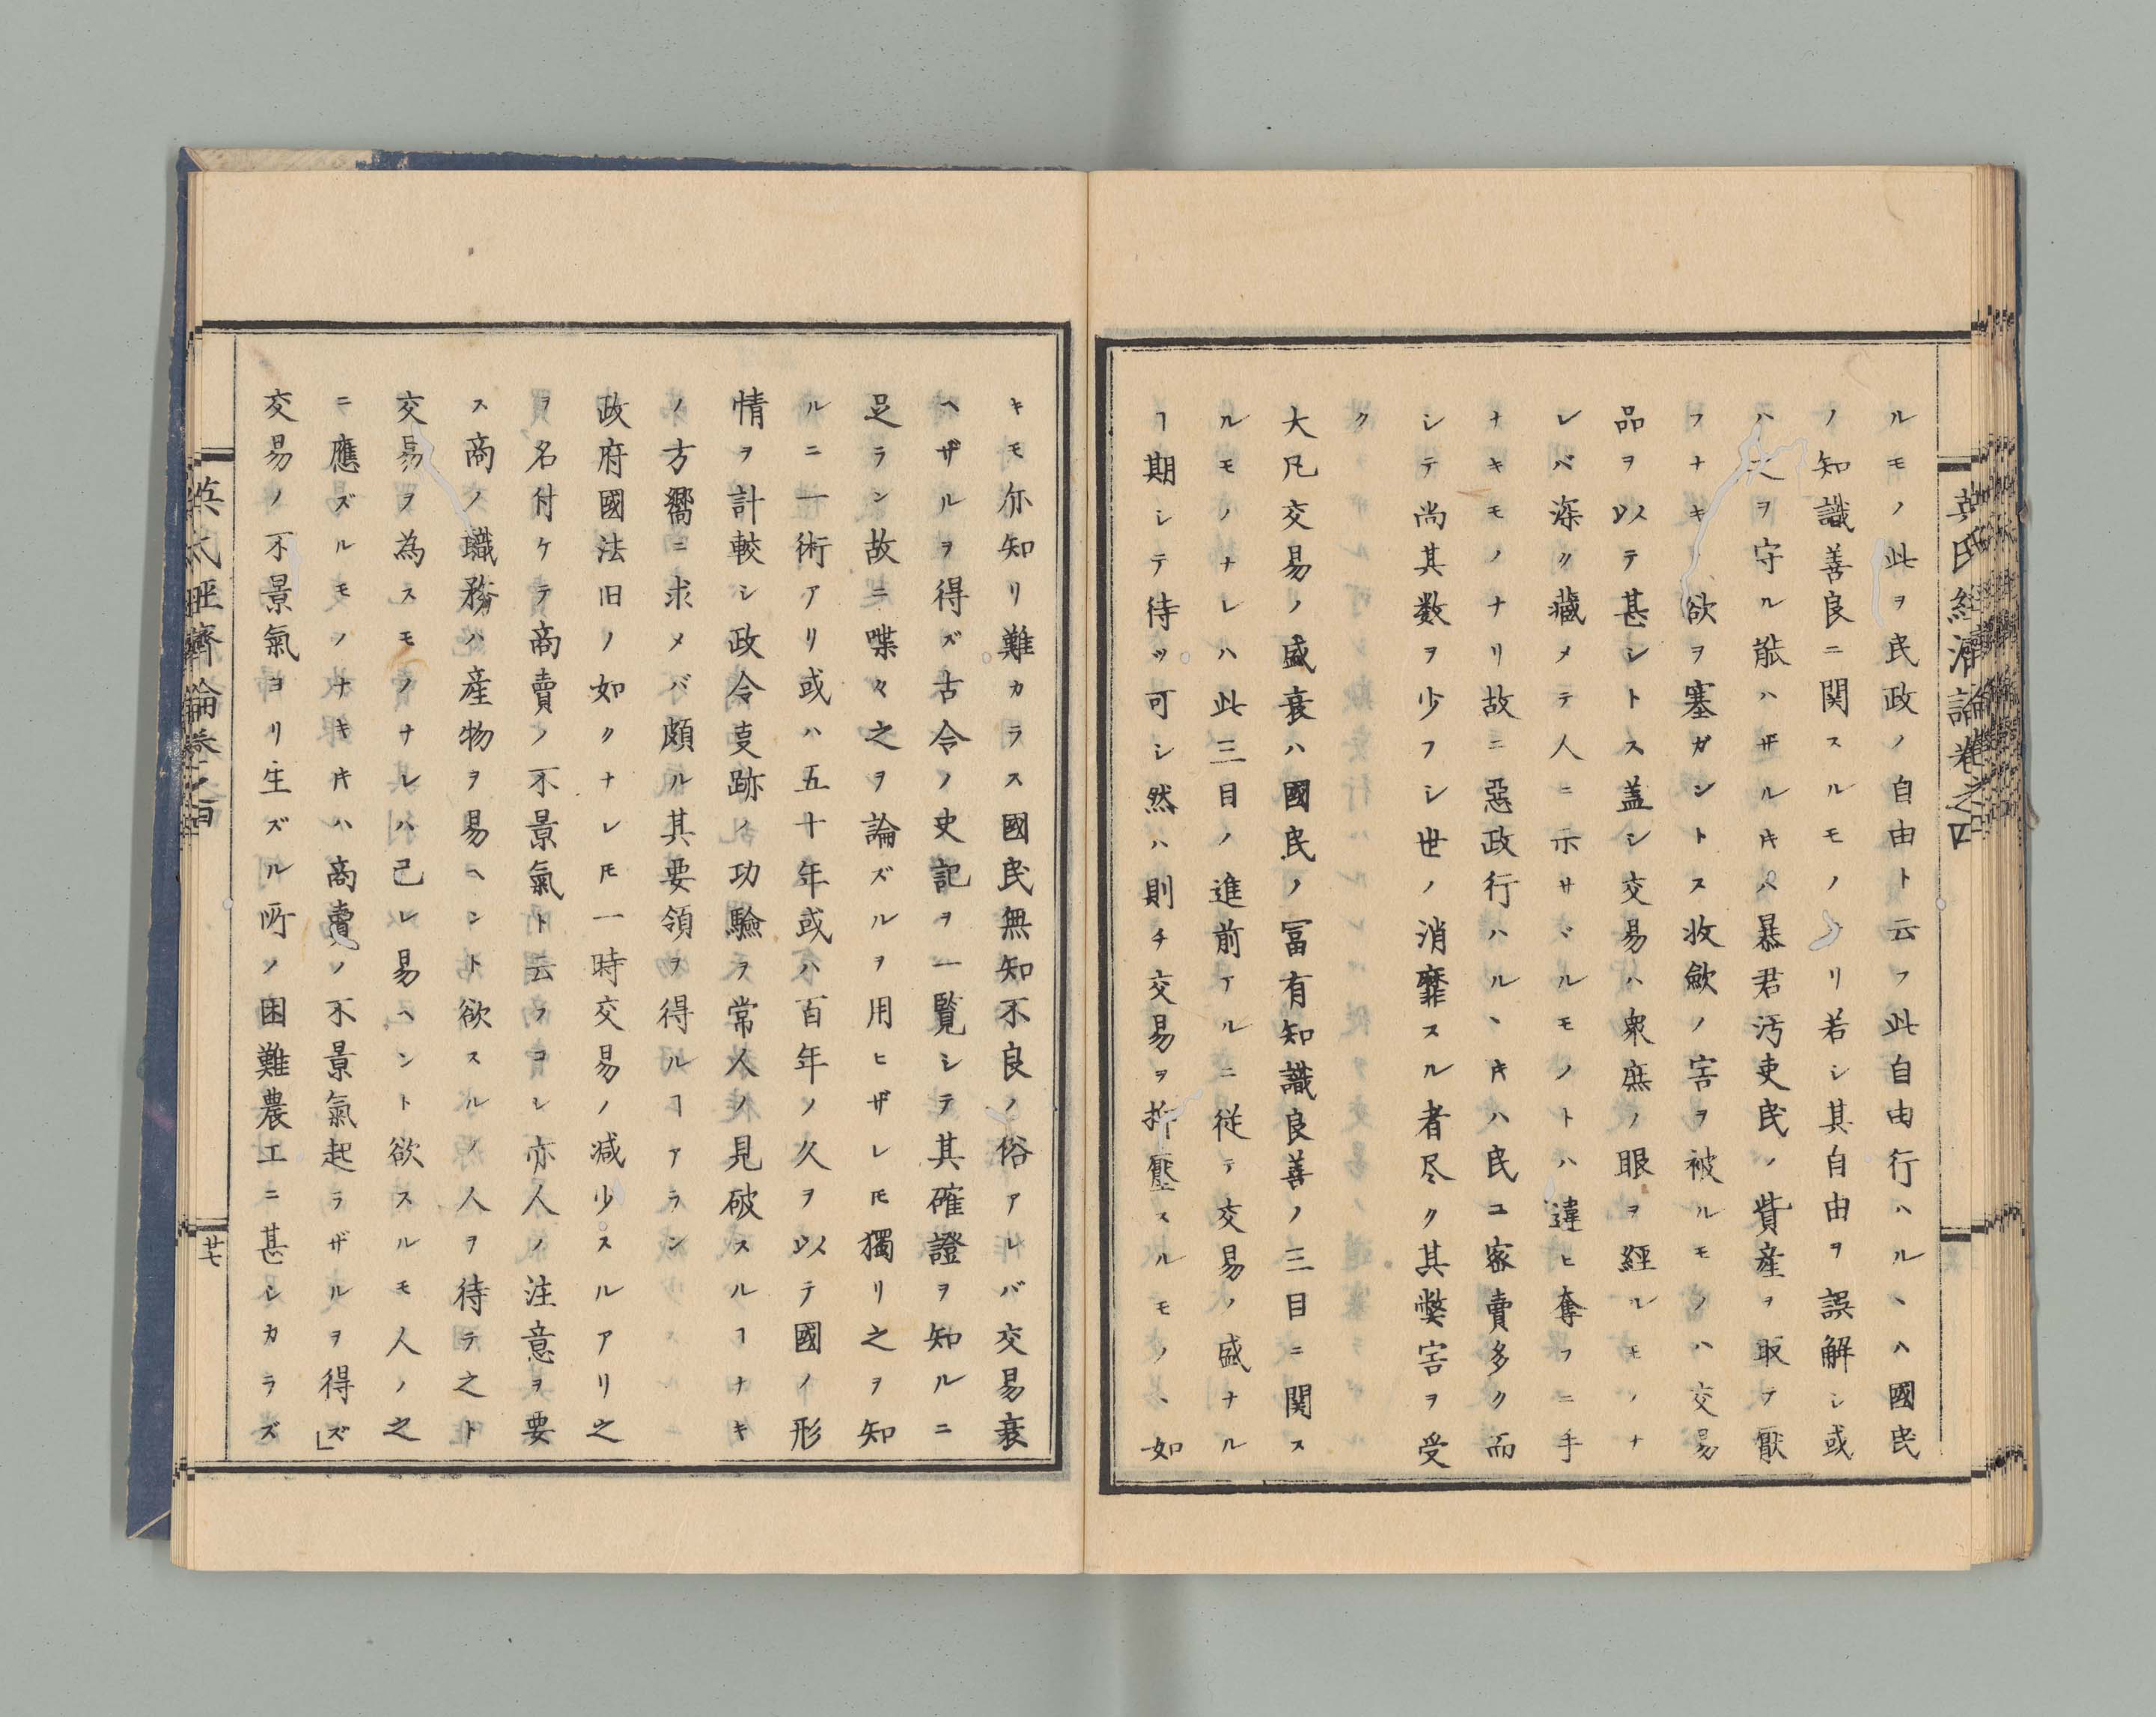 英氏経濟論巻之四
ルモノ此ヲ民政ノ自由ト云フ此自由行ハルヽハ國民
ノ知識善良ニ関スルモノナリ若シ其自由ヲ誤解シ或
ハ之ヲ守ル能ハザルキハ暴君汚吏民ノ貲産ヲ取テ厭
フナキノ欲ヲ塞ガントス收歛ノ害ヲ被ルモノハ交易
品ヲ以テ甚シトス盖シ交易ハ衆庶ノ眼ヲ経ルモノナ
レバ深ク藏メテ人ニ示サヾルモノトハ違ヒ奪フニ手
ナキモノナリ故ニ惡政行ハルヽキハ民ユ家賣多ク而
シテ尚其数ヲ少フシ世ノ消靡スル者尽ク其獘害ヲ受
ク
大凡交易ノ盛衰ハ國民ノ冨有知識良善ノ三目ニ関ス
ルモノナレハ此三目ノ進前アルニ従テ交易ノ盛ナル
ヿ期シテ待ツ可シ然ハ則チ交易ヲ折壓スルモノヽ如
キモ亦知リ難カラス國民無知不良ノ俗アレバ交易衰
ヘザルヲ得ズ古今ノ史記ヲ一覧シテ其確證ヲ知ルニ
足ラン故ニ喋々之ヲ論ズルヲ用ヒザレ𪜈獨リ之ヲ知
ルニ一術アリ或ハ五十年或ハ百年ノ久ヲ以テ國ノ形
情ヲ計較シ政令㕝跡ノ功驗ヲ常人ノ見破スルヿナキ
ノ方嚮ニ求メバ頗ル其要領ヲ得ルヿアラン
政府國法旧ノ如クナレ𪜈一時交易ノ減少スルアリ之
ヲ名付ケテ商賣ノ不景氣ト云フコレ亦人ノ注意ヲ要
ス商ノ職務ハ産物ヲ易ヘント欲スルノ人ヲ待テ之ト
交易ヲ為スモノナレハ己レ易ヘント欲スルモ人ノ之
ニ應ズルモノナキキハ商賣ノ不景氣起ラザルヲ得ズ」
交易ノ不景氣ヨリ生ズル所ノ困難農工ニ甚シカラズ
英氏經濟論巻之四
廿七